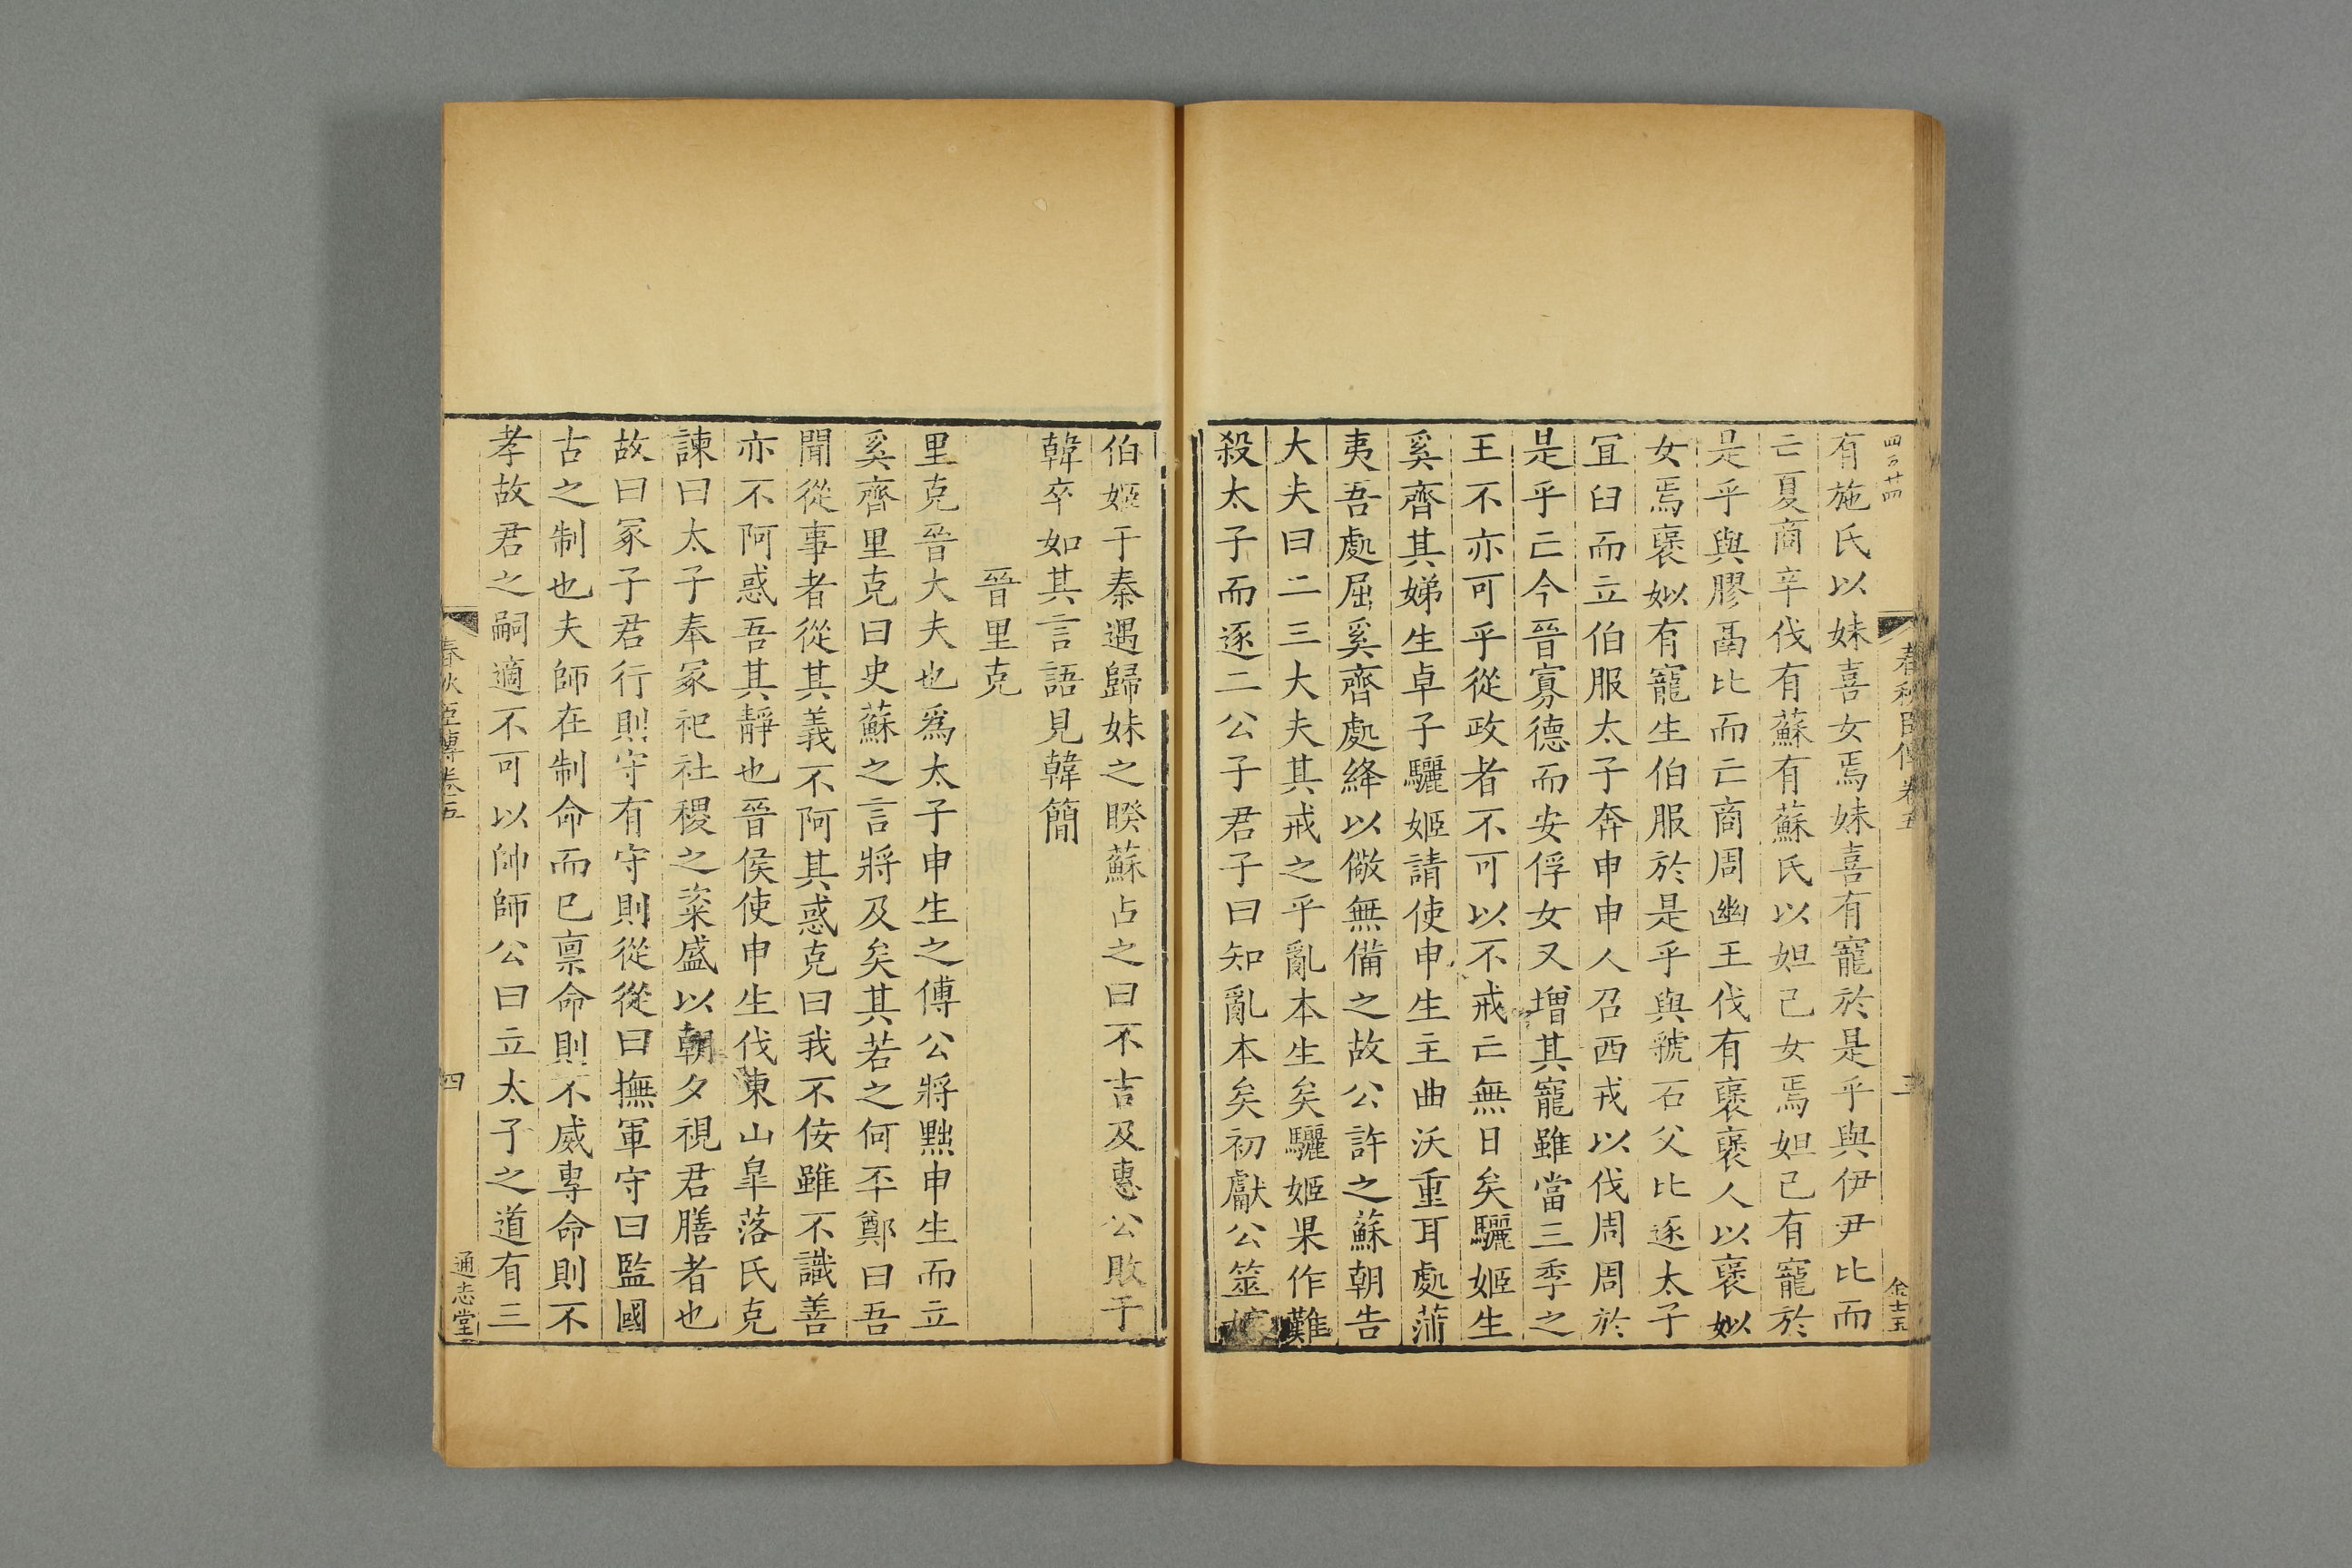 四百廿四
春秋臣傳卷五
三
金士玉
有施氏以妹喜女焉妹喜有寵於是乎與伊尹比而
亡夏商辛伐有蘇有蘇氏以妲己女焉妲己有寵於
是乎與膠鬲比而亡商周幽王伐有襃襃人以襃姒
女焉襃姒有寵生伯服於是乎與虢石父比逐太子
宜臼而立伯服太子奔申申人召西戎以伐周周於
是乎亡今晉寡德而安俘女又增其寵雖當三季之
王不亦可乎從政者不可以不戒亡無日矣驪姬生
奚齊其娣生卓子驪姬請使申生主曲沃重耳處蒲
夷吾處屈奚齊處絳以儆無備之故公許之蘇朝告
大夫曰二三大夫其戒之乎亂本生矣驪姬果作難
殺太子而逐二公子君子曰知亂本矣初獻公筮嫁
伯姬于秦遇歸妹之睽蘇占之曰不吉及惠公敗于
韓卒如其言語見韓簡
晉里克
里克晉大夫也爲太子申生之傅公將黜申生而立
奚齊里克曰史蘇之言將及矣其若之何丕鄭曰吾
聞從事者從其義不阿其惑克曰我不佞雖不識善
亦不阿惑吾其靜也晉侯使申生伐東山皐落氏克
諫曰太子奉冢祀社稷之粢盛以朝夕視君膳者也
故曰冢子君行則守有守則從從曰撫軍守曰監國
古之制也夫師在制命而已禀命則不威專命則不
孝故君之嗣適不可以帥師公曰立太子之道有三
春秋臣傳卷五
四
通志堂